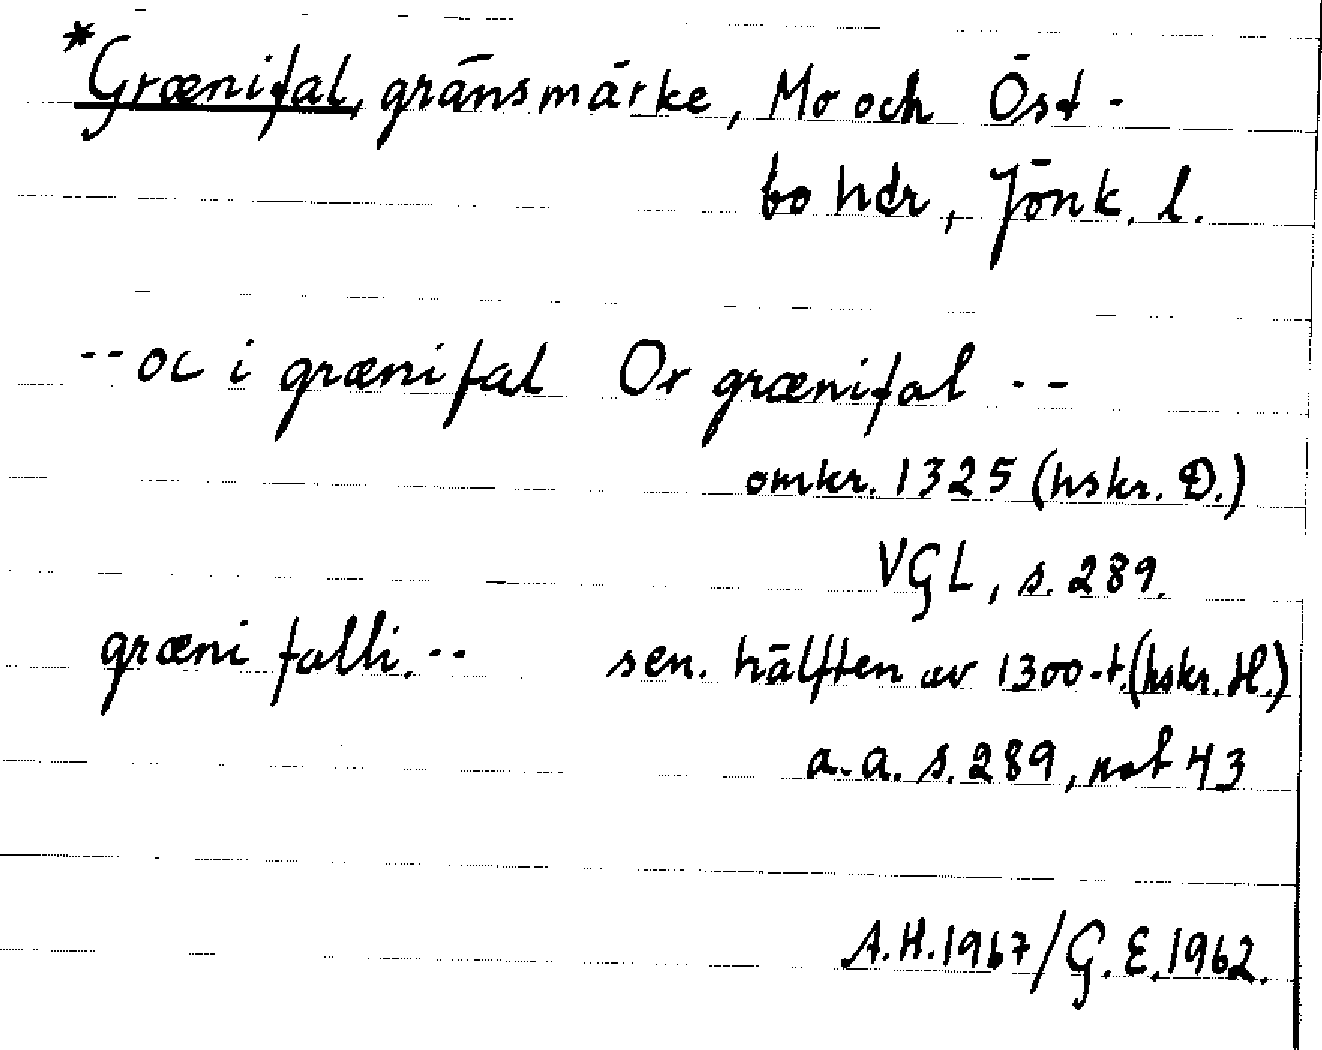 *Grænifal, gränsmärke, Mo och Öst-
bo hdr, Jönk. l.
--oc i grænifal Or grænifal --
omkr. 1325 (hskr. D.)
VGL, s. 289.
græni falli. -- sen. hälften av 1300-t. (hskr. H.)
a.a. s. 289, not 43
A.H. 1967/G.E. 1962.